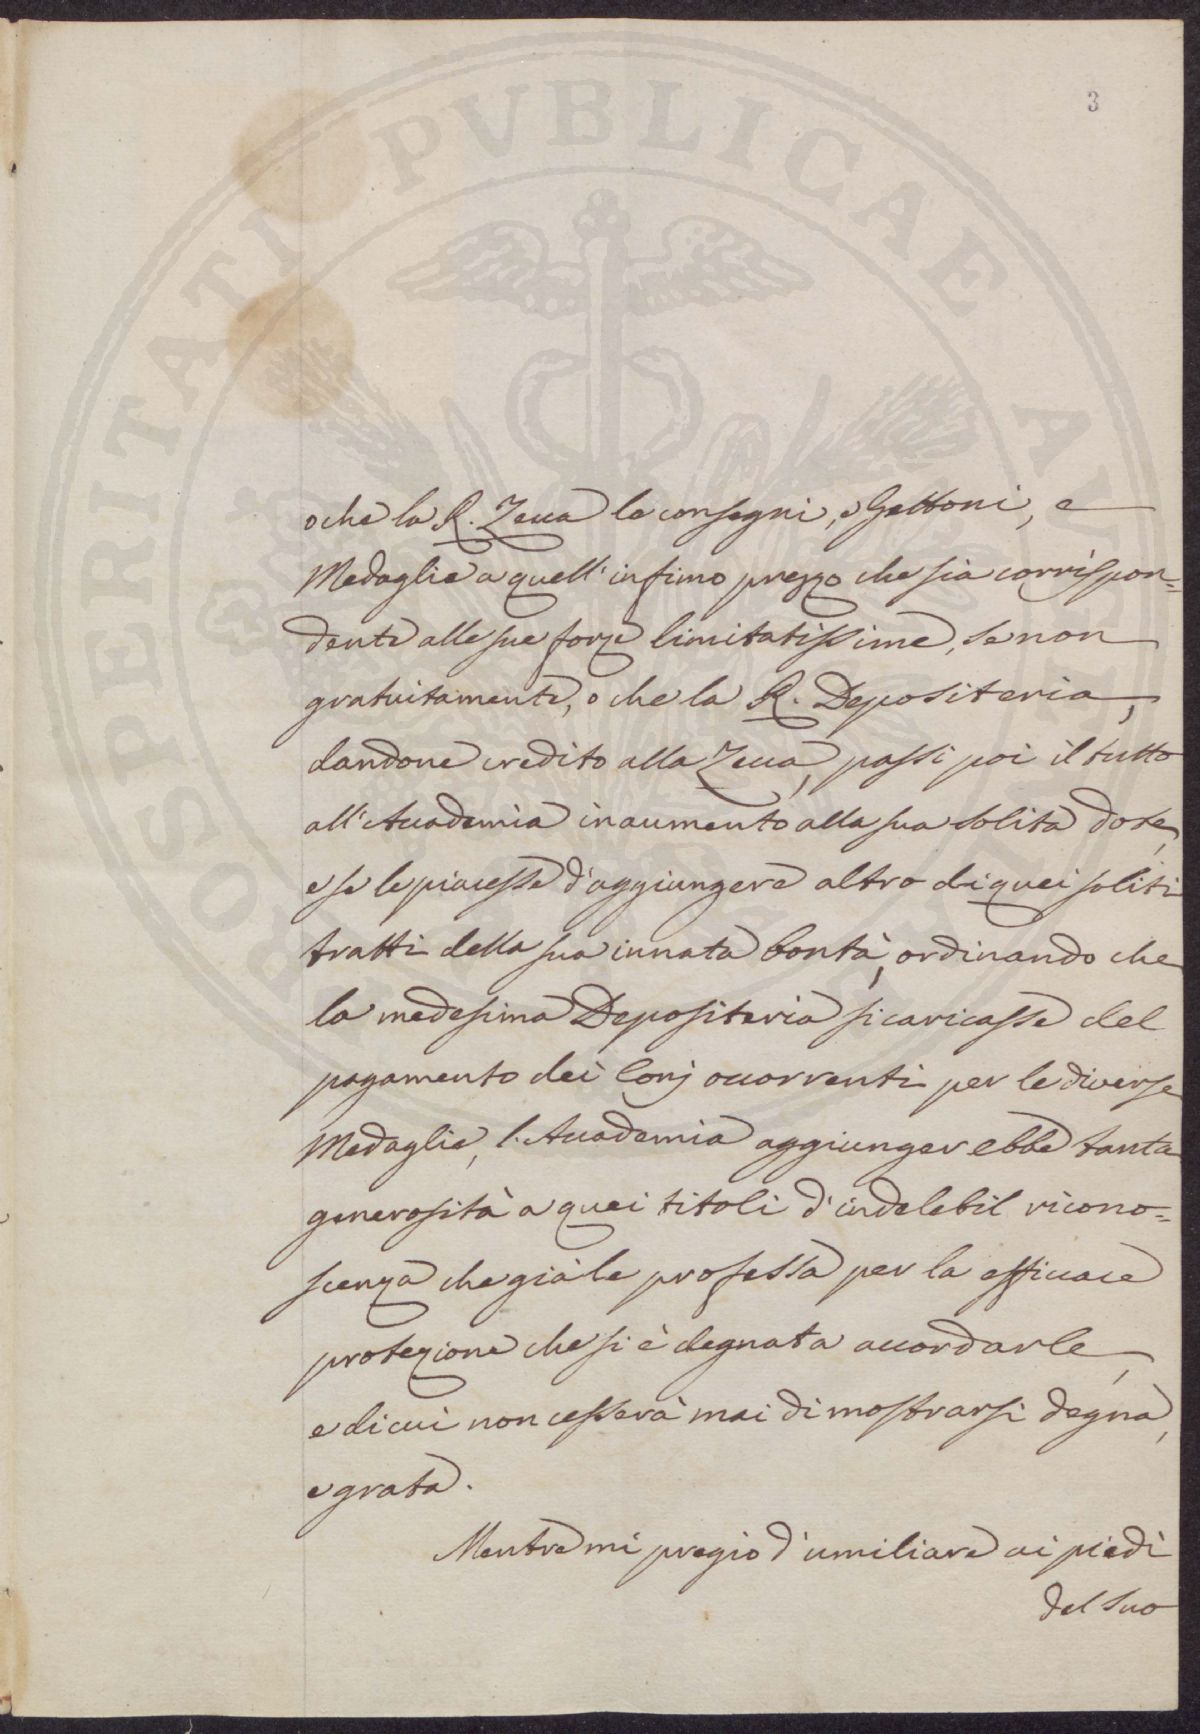 3
PROSPERITATI PVBLICAE AVGENDAE
o che la R. Zecca le consegni, e Gettoni, e
Medaglie a quell' infimo prezzo che sia corrispon=
dente alle sue forze limitatissime, se non
gratuitamente, o che la R. Depositeria,
dandone credito alla Zecca, passi poi il tutto
all' Accademia in aumento alla sua solita dote,
e se le piacesse d'aggiungere altro di quei soliti
tratti della sua innata bontà, ordinando che
la medesima Depositeria si caricasse del
pagamento dei Conj occorrenti per le diverse
Medaglie, l'Accademia aggiungerebbe tanta
generosità a quei titoli d'indelebil ricono=
scenza che già le professa per la efficace
protezione che si è degnata accordarle,
e di cui non cesserà mai di mostrarsi degna,
e grata.
Mentre mi pregio d'umiliare ai piedi
del Suo